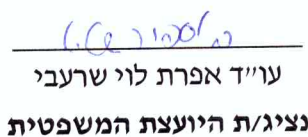 עו״ד אפרת לוי שרעבי
נציג/ת היועצת המשפטית